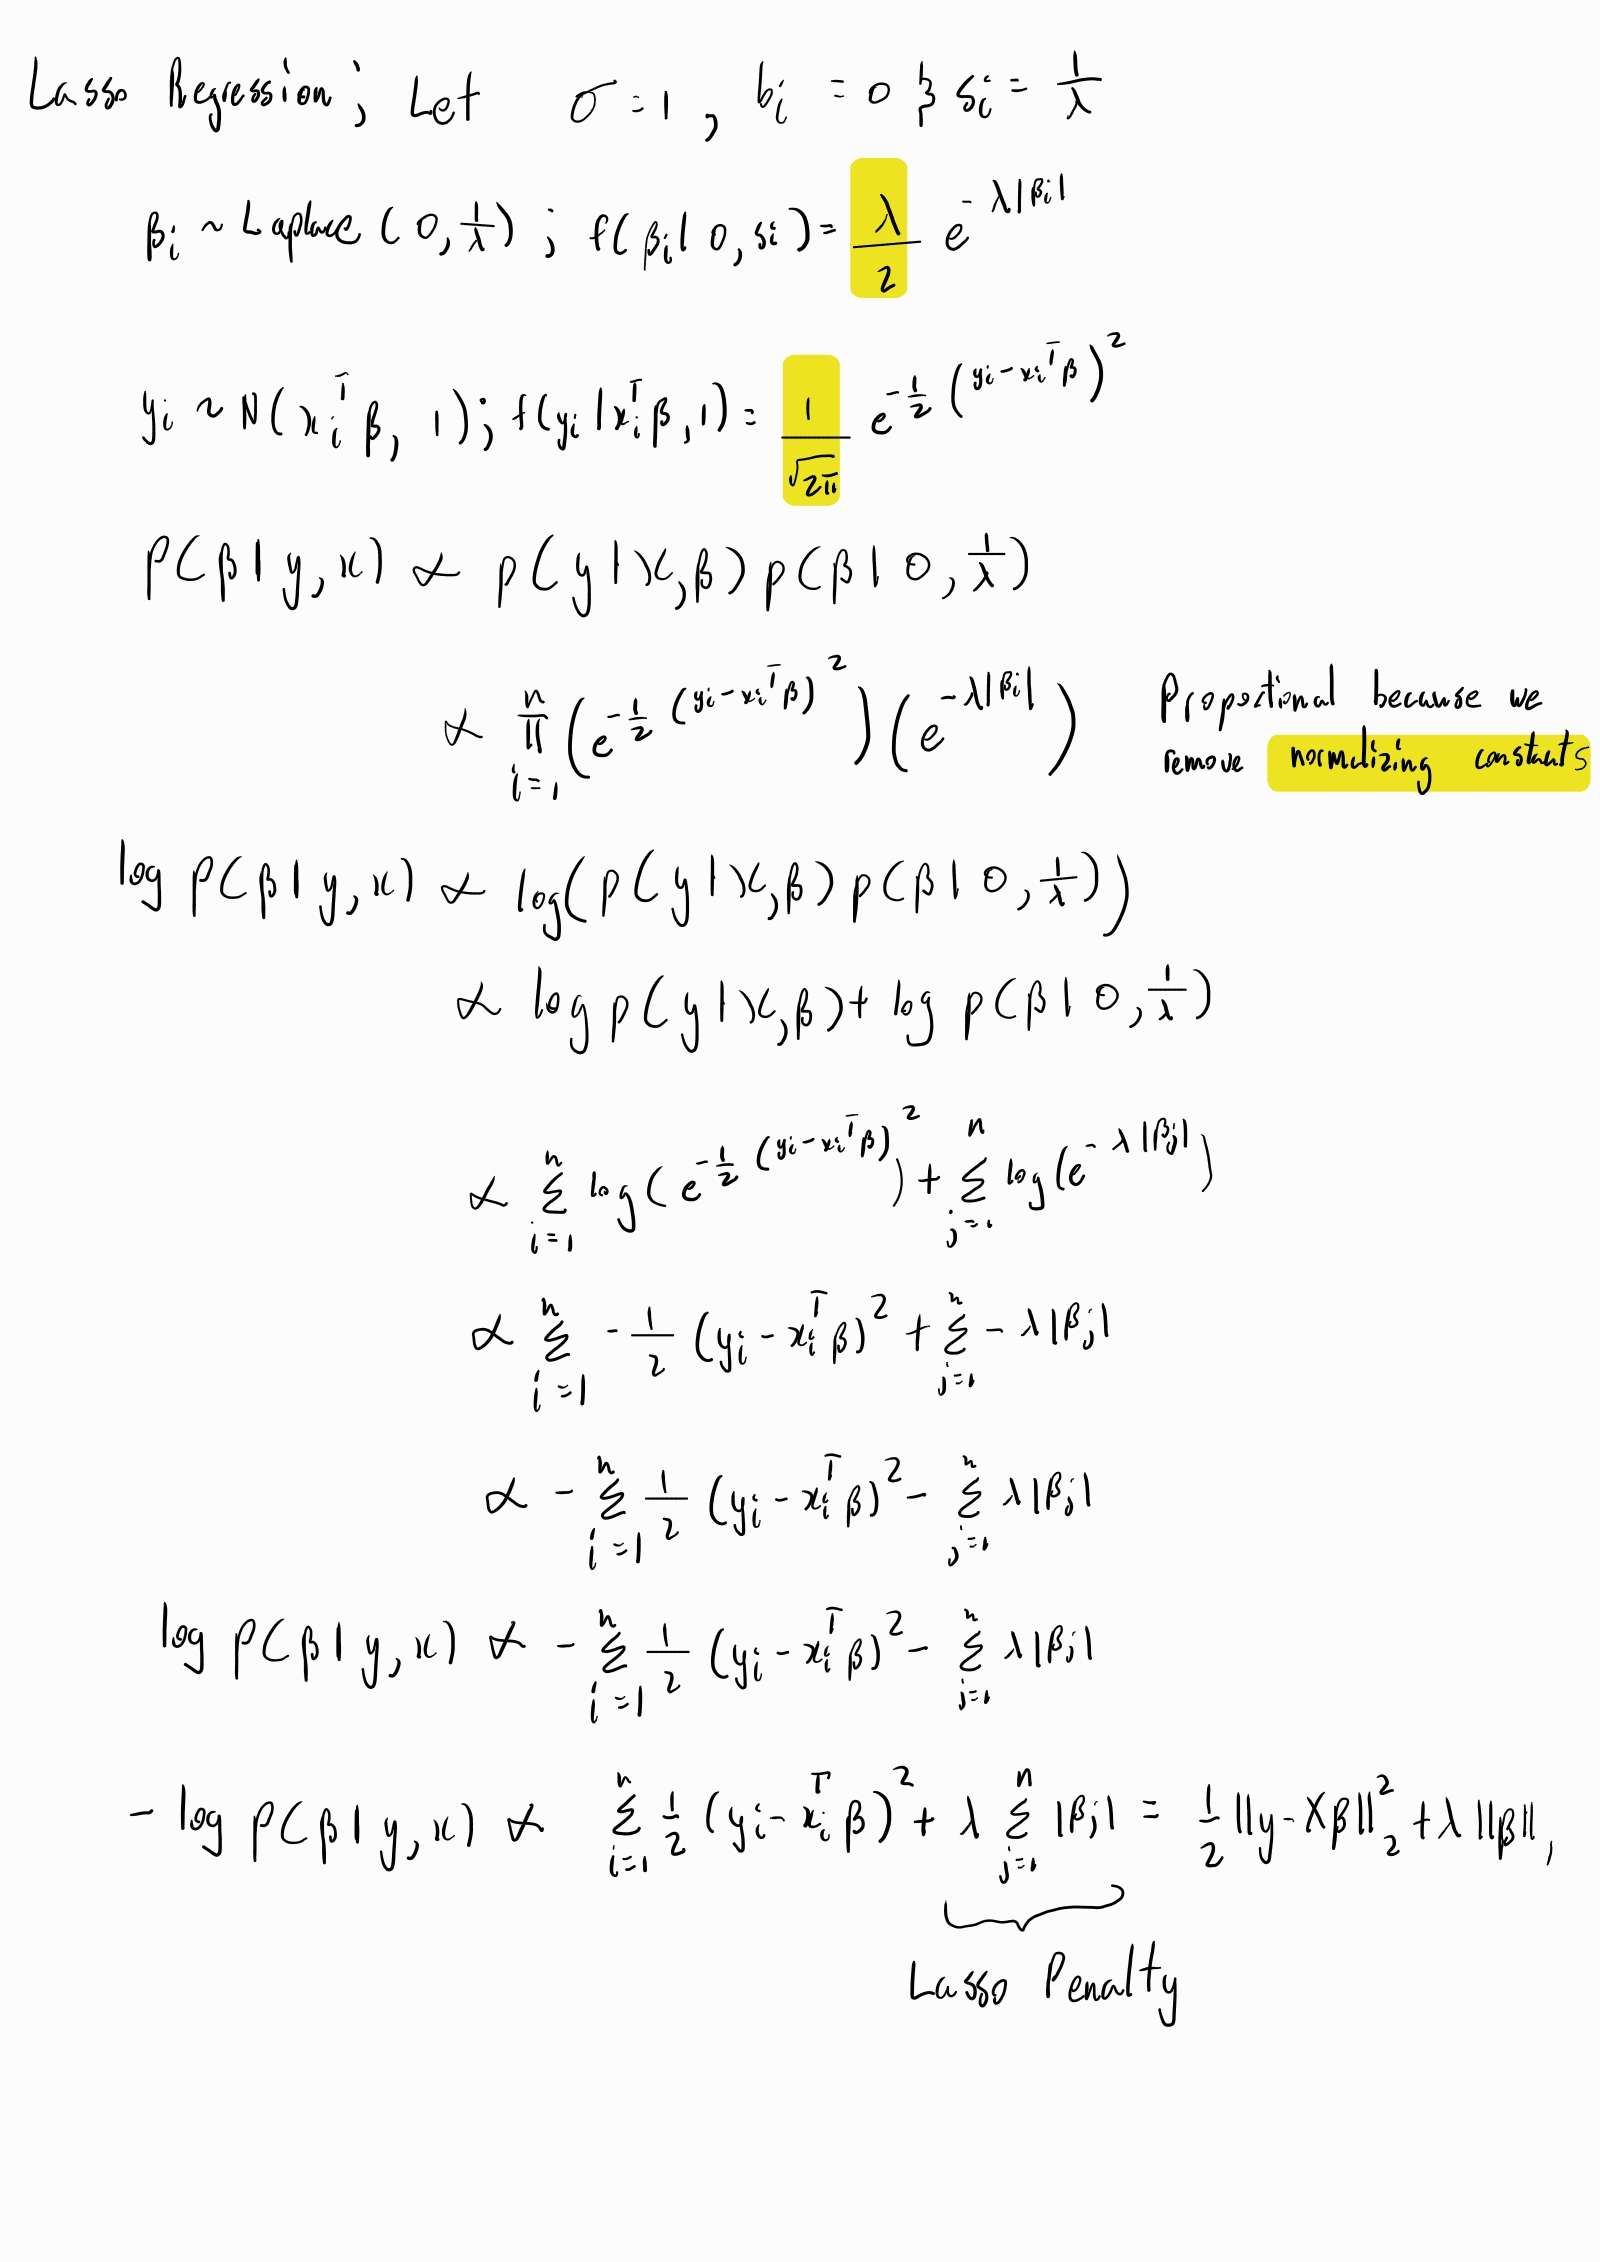 Lasso Regression; Let σ = 1, bᵢ = 0 & sᵢ = 1/λ
βᵢ ~ Laplace(0, 1/λ); f(βᵢ | 0, sᵢ) = λ/2 e^(-λ|βᵢ|)
yᵢ ~ N(xᵢᵀβ, 1); f(yᵢ | xᵢᵀβ, 1) = 1/√(2π) e^(-1/2 (yᵢ - xᵢᵀβ)²)
P(β | y, x) ∝ p(y | x, β) p(β | 0, 1/λ)
∝ ∏_{i=1}^{n} (e^(-1/2 (yᵢ - xᵢᵀβ)²)) (e^(-λ|βᵢ|)) Proportional because we
remove normalizing constants
log P(β | y, x) ∝ log(p(y | x, β) p(β | 0, 1/λ))
∝ log p(y | x, β) + log p(β | 0, 1/λ)
∝ Σ_{i=1}^{n} log(e^(-1/2 (yᵢ - xᵢᵀβ)²)) + Σ_{j=1}^{n} log(e^(-λ|βⱼ|))
∝ Σ_{i=1}^{n} -1/2 (yᵢ - xᵢᵀβ)² + Σ_{j=1}^{n} -λ|βⱼ|
∝ - Σ_{i=1}^{n} 1/2 (yᵢ - xᵢᵀβ)² - Σ_{j=1}^{n} λ|βⱼ|
log P(β | y, x) ∝ - Σ_{i=1}^{n} 1/2 (yᵢ - xᵢᵀβ)² - Σ_{j=1}^{n} λ|βⱼ|
- log P(β | y, x) ∝ Σ_{i=1}^{n} 1/2 (yᵢ - xᵢᵀβ)² + λ Σ_{j=1}^{n} |βⱼ| = 1/2 ||y - Xβ||²₂ + λ||β||₁
Lasso Penalty